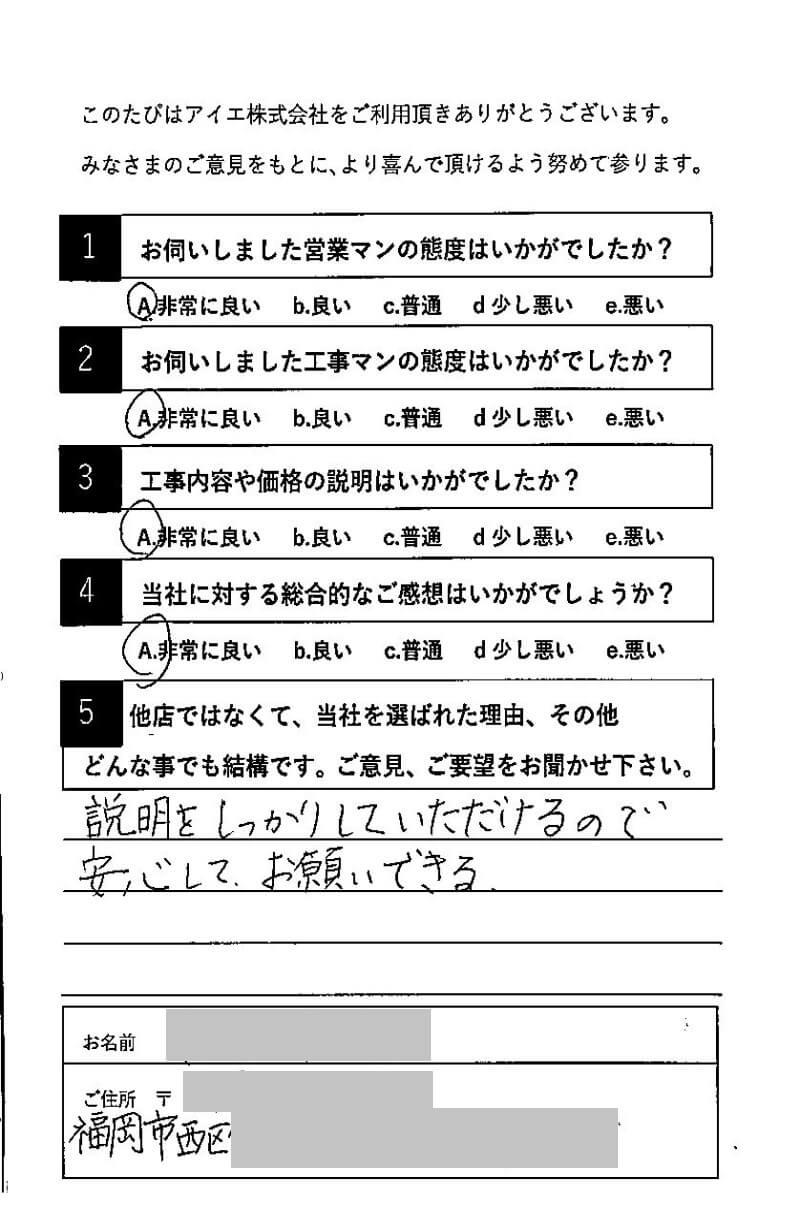 このたびはアイエ株式会社をご利用頂きありがとうございます。
みなさまのご意見をもとに、より喜んで頂けるよう努めて参ります。
1 お伺いしました営業マンの態度はいかがでしたか？
A.非常に良い b.良い c.普通 d少し悪い e.悪い
2 お伺いしました工事マンの態度はいかがでしたか？
A.非常に良い b.良い c.普通 d少し悪い e.悪い
3 工事内容や価格の説明はいかがでしたか？
A.非常に良い b.良い c.普通 d少し悪い e.悪い
4 当社に対する総合的なご感想はいかがでしょうか？
A.非常に良い b.良い c.普通 d少し悪い e.悪い
5 他店ではなくて、当社を選ばれた理由、その他
どんな事でも結構です。ご意見、ご要望をお聞かせ下さい。
説明をしっかりしていただけるので
安心して、お願いできる、
お名前
ご住所 〒
福岡市西区